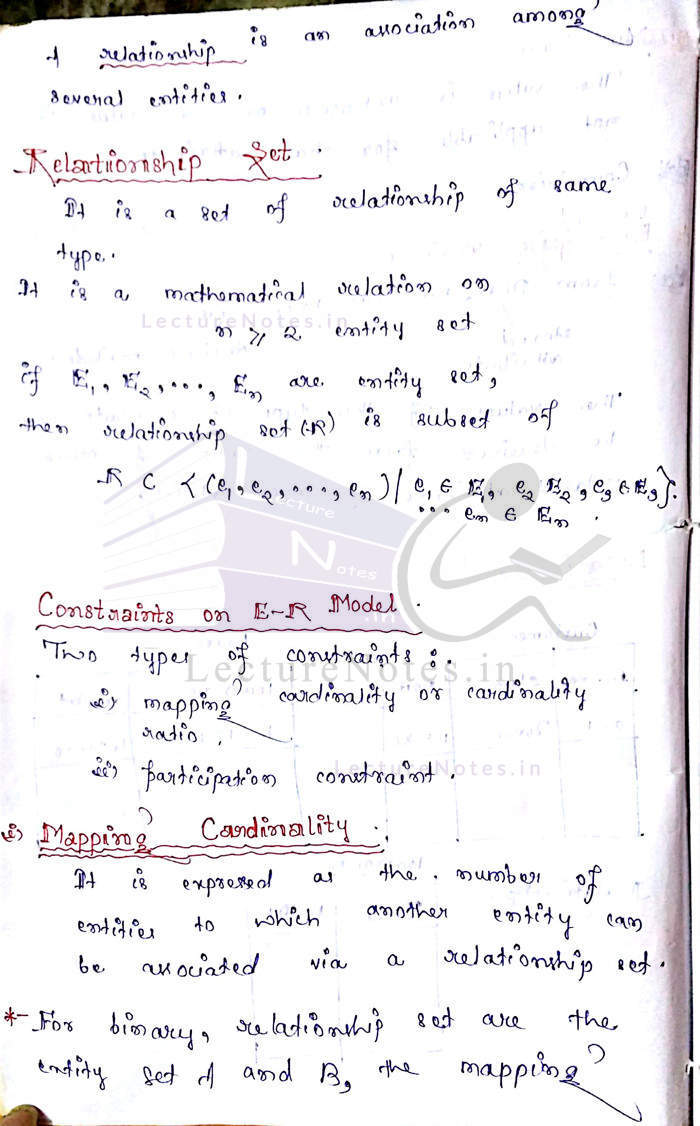 A relationship is an association among
several entities.
Relationship Set
It is a set of relationship of same
type.
It is a mathematical relation on
LectureNotes.in
n ⩾ 2 entity set
if E₁, E₂, ..., Eₙ are entity set,
then relationship set (R) is subset of
R ⊂ {(e₁, e₂, ..., eₙ) / e₁ ∈ E₁, e₂ E₂, e₃ ∈ E₃}.
... eₙ ∈ Eₙ.
Lecture
Notes
.in
Constraints on E-R Model.
Two types of constraints :.
LectureNotes.in
i) mapping cardinality or cardinality
ratio.
LectureNotes.in
ii) participation constraint.
i) Mapping Cardinality.
It is expressed as the number of
entities to which another entity can
be associated via a relationship set.
*- For binary, relationship set are the
entity set A and B, the mapping